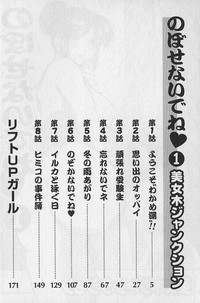 のぼせないでね♥
①美女木ジャンクション
第1話 ようこそ、わかめ湯へ!! 5
第2話 思い出のオッパイ 27
第3話 頑張れ受験生 47
第4話 忘れないでネ 67
第5話 冬の雨あがり 87
第6話 のぞかないでね♥ 107
第7話 イルカと泳ぐ日 129
第8話 ヒミコの事件簿 149
リフトUPガール 171